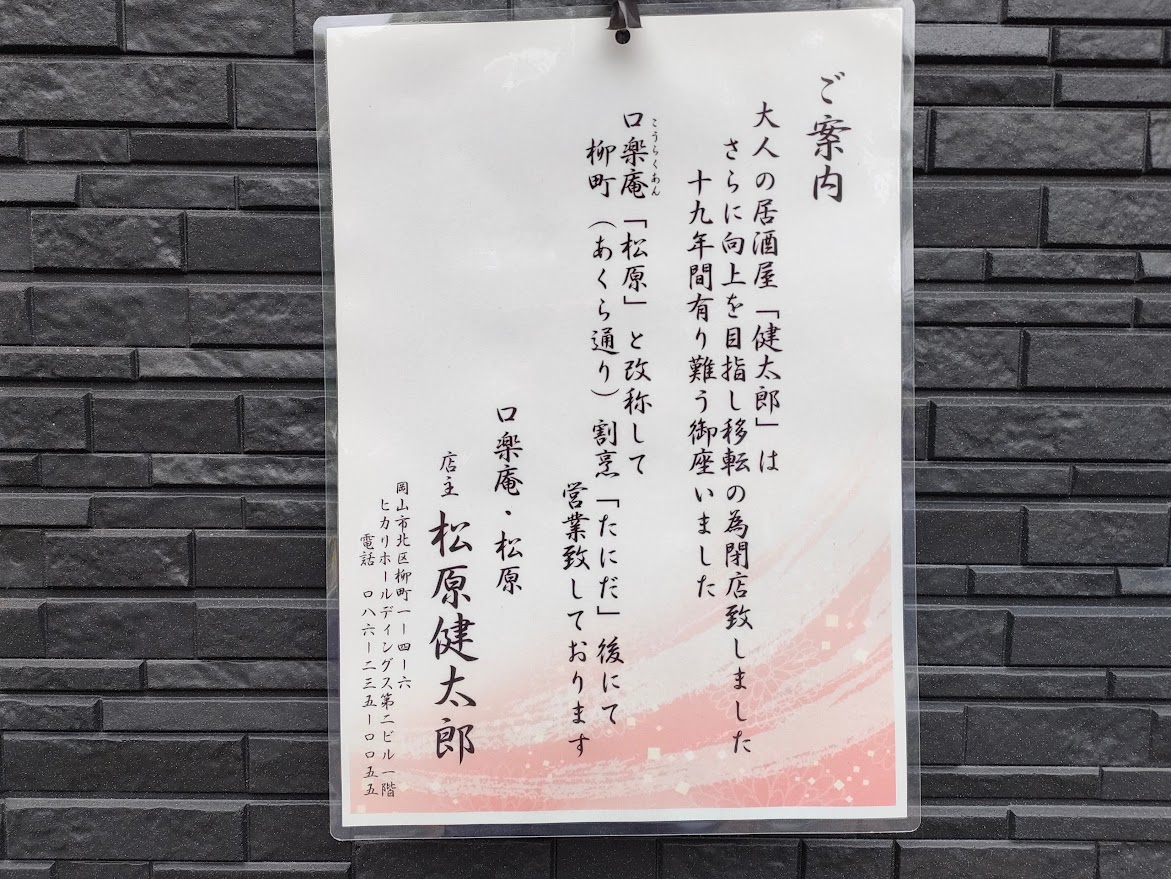 ご案内
大人の居酒屋「健太郎」は
さらに向上を目指し移転の為閉店致しました
十九年間有り難う御座いました
こうらくあん
口楽庵「松原」と改称して
柳町（あくら通り）割烹「たにだ」後にて
営業致しております
口楽庵・松原
店主 松原健太郎
岡山市北区柳町一ー四ー六
ヒカリホールディングス第二ビル一階
電話 ロ八六ー二三五ーロロ五五